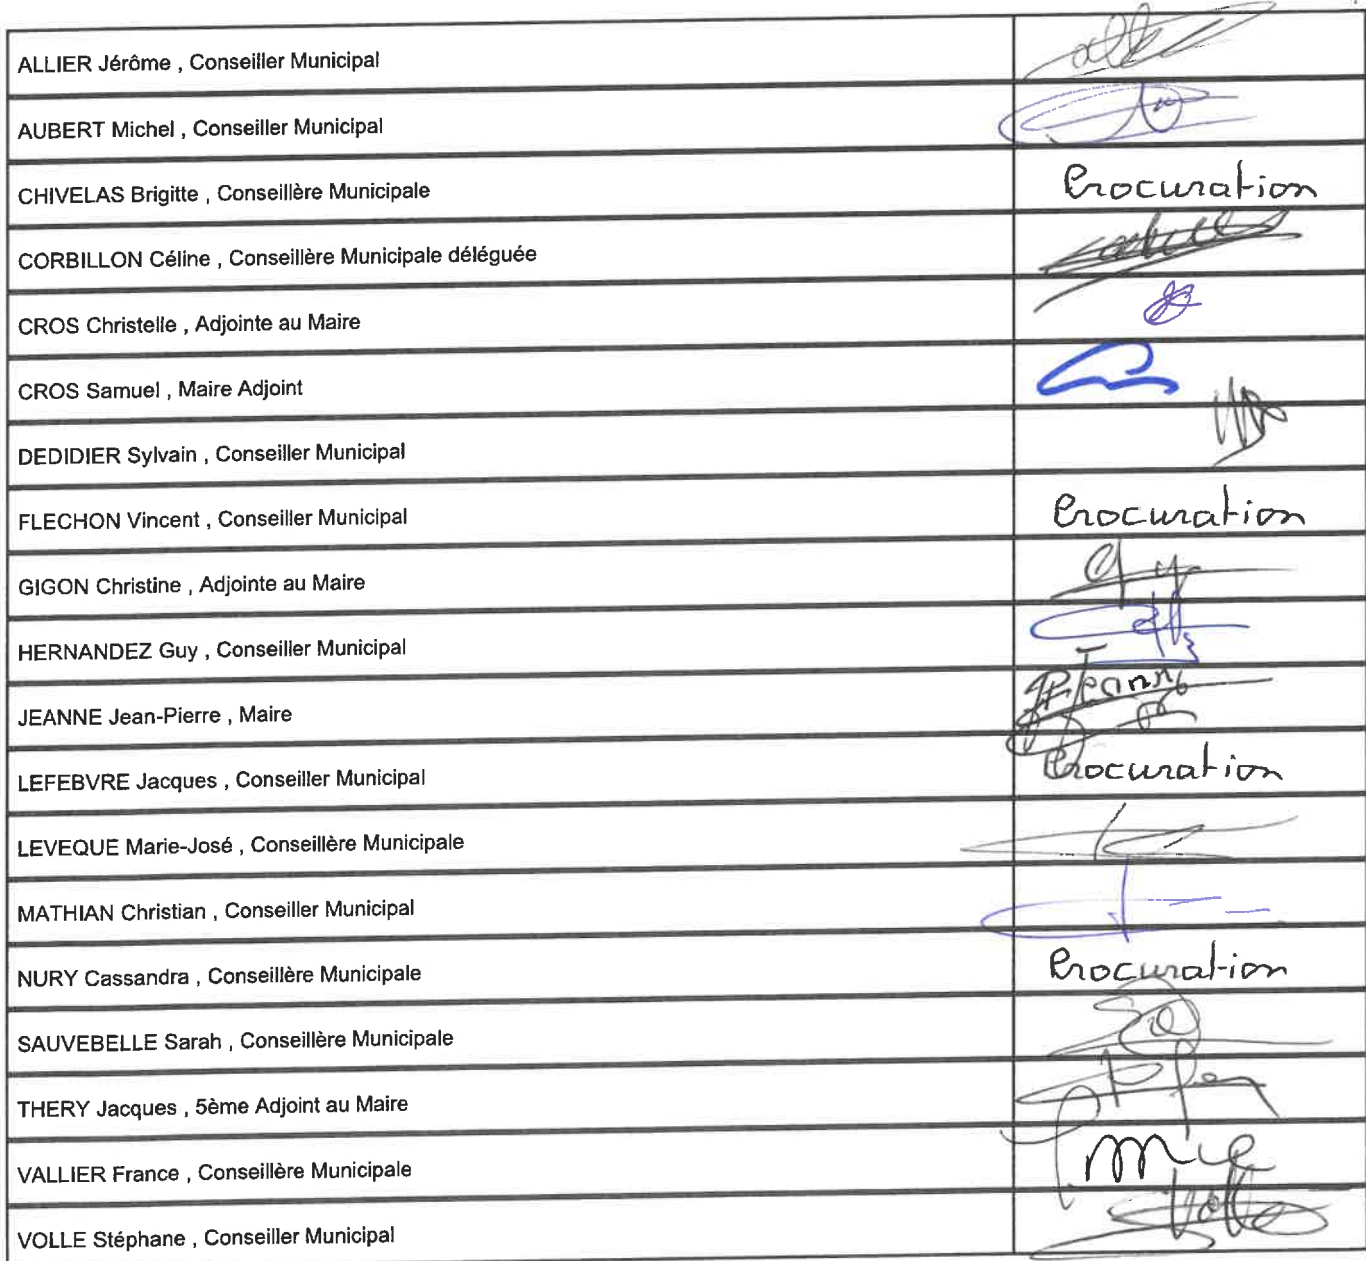 ALLIER Jérôme , Conseiller Municipal
AUBERT Michel , Conseiller Municipal
CHIVELAS Brigitte , Conseillère Municipale Procuration
CORBILLON Céline , Conseillère Municipale déléguée
CROS Christelle , Adjointe au Maire
CROS Samuel , Maire Adjoint
DEDIDIER Sylvain , Conseiller Municipal
FLECHON Vincent , Conseiller Municipal Procuration
GIGON Christine , Adjointe au Maire
HERNANDEZ Guy , Conseiller Municipal
JEANNE Jean-Pierre , Maire
LEFEBVRE Jacques , Conseiller Municipal Procuration
LEVEQUE Marie-José , Conseillère Municipale
MATHIAN Christian , Conseiller Municipal
NURY Cassandra , Conseillère Municipale Procuration
SAUVEBELLE Sarah , Conseillère Municipale
THERY Jacques , 5ème Adjoint au Maire
VALLIER France , Conseillère Municipale
VOLLE Stéphane , Conseiller Municipal